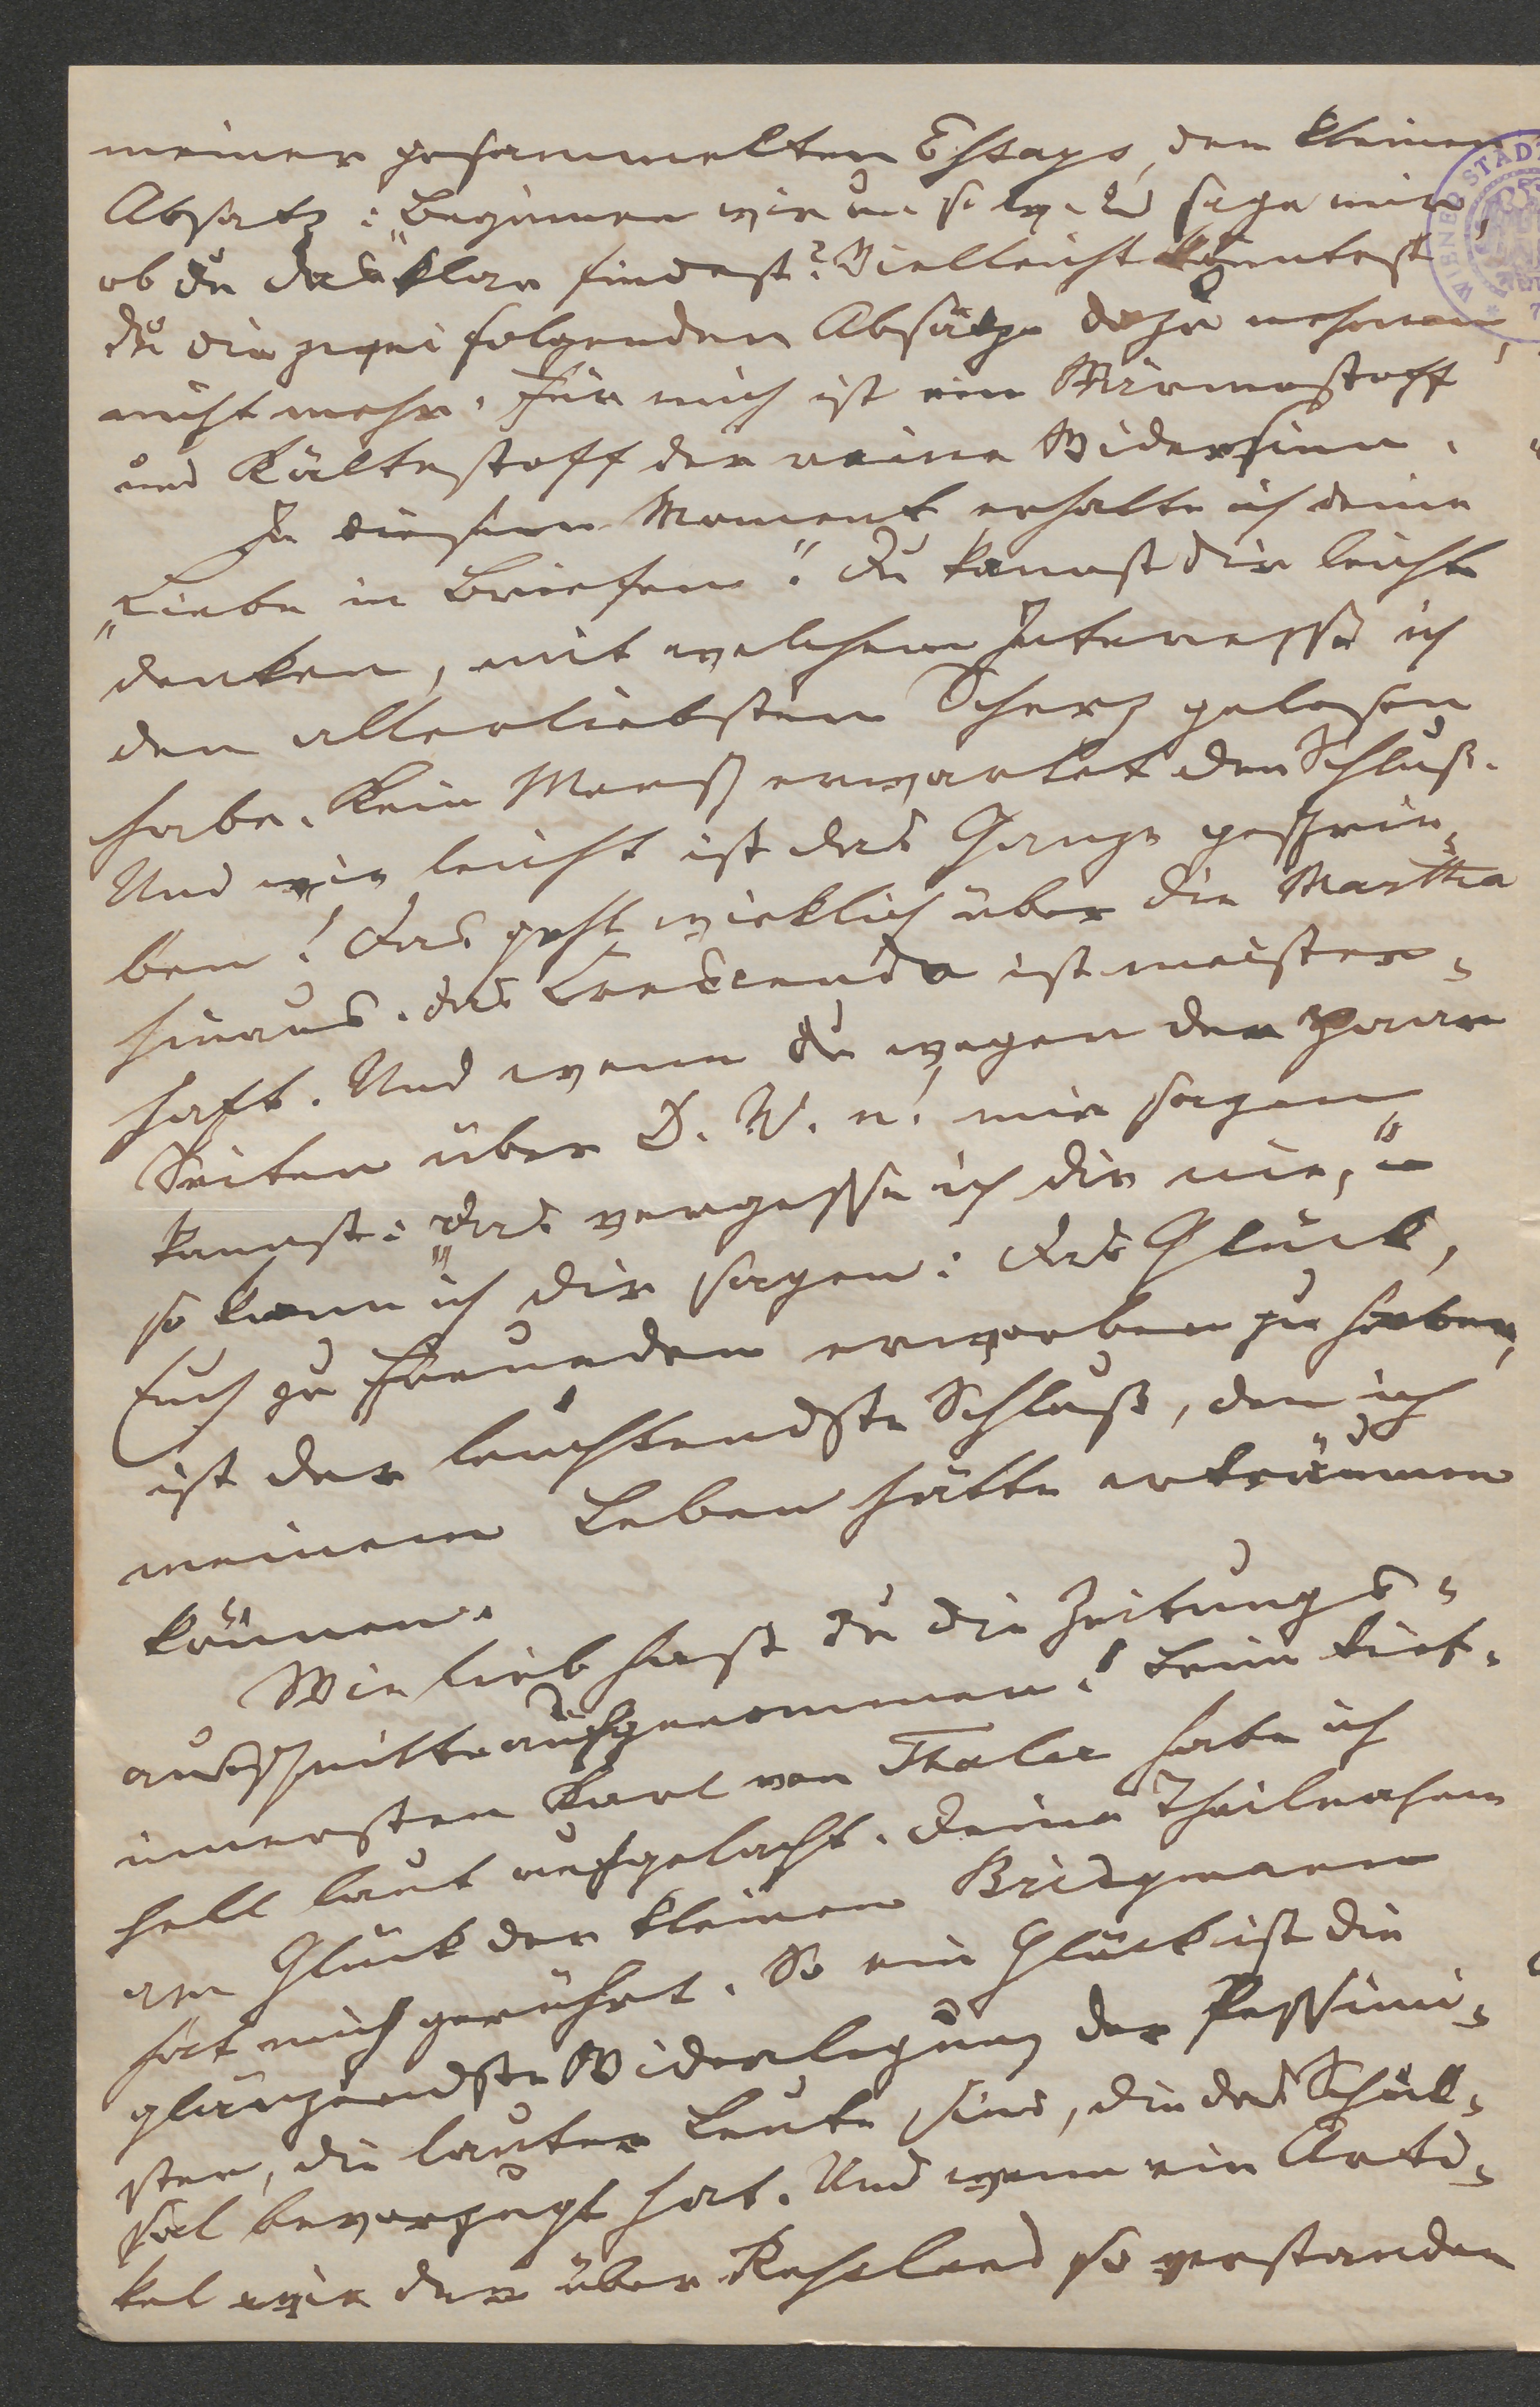 meiner gesammelten Essays, den kleinen
Absatz: „Beginnen wir u. s. w." u sage mir,
ob du das klar findest? Vielleicht könntest
du die zwei folgenden Absätze dazu nehmen,
nicht mehr. Für mich ist ein Wärmestoff
und Kältestoff der reine Widersinn.
In diesem Moment erhalte ich deine
„Liebe in Briefen". Du kannst dir leicht
denken, mit welchem Interesse ich
den allerliebsten Scherz gelesen
habe. Kein Mensch erwartet den Schluß.
Und wie leicht ist das Ganze geschrie-
ben! Das geht wirklich über die Martha
hinaus. das Crescendo ist meister-
haft. Und wenn du wegen der paar
Seiten über D. W. n! mir sagen
kannst: „das vergesse ich dir nie," –
so kann ich dir sagen: das Glück,
Euch zu Freunden erworben zu haben,
ist der leuchtendste Schluß, den ich
meinem Leben hätte erträumen
können.
Wie lieb hast du die Zeitungs-
ausschnitte aufgenommen! Beim tief-
innersten Karl von Thaler habe ich
hell laut aufgelacht. Deine Theilnahme
am Glück der kleinen Bridgmann
hat mich gerührt. So ein Glück ist die
glänzendste Widerlegung der Pessimi-
sten, die lauter Leute sind, die das Schick-
sal bevorzugt hat. Und wenn ein Arti-
kel wie der über so verstanden
WIENER STADT